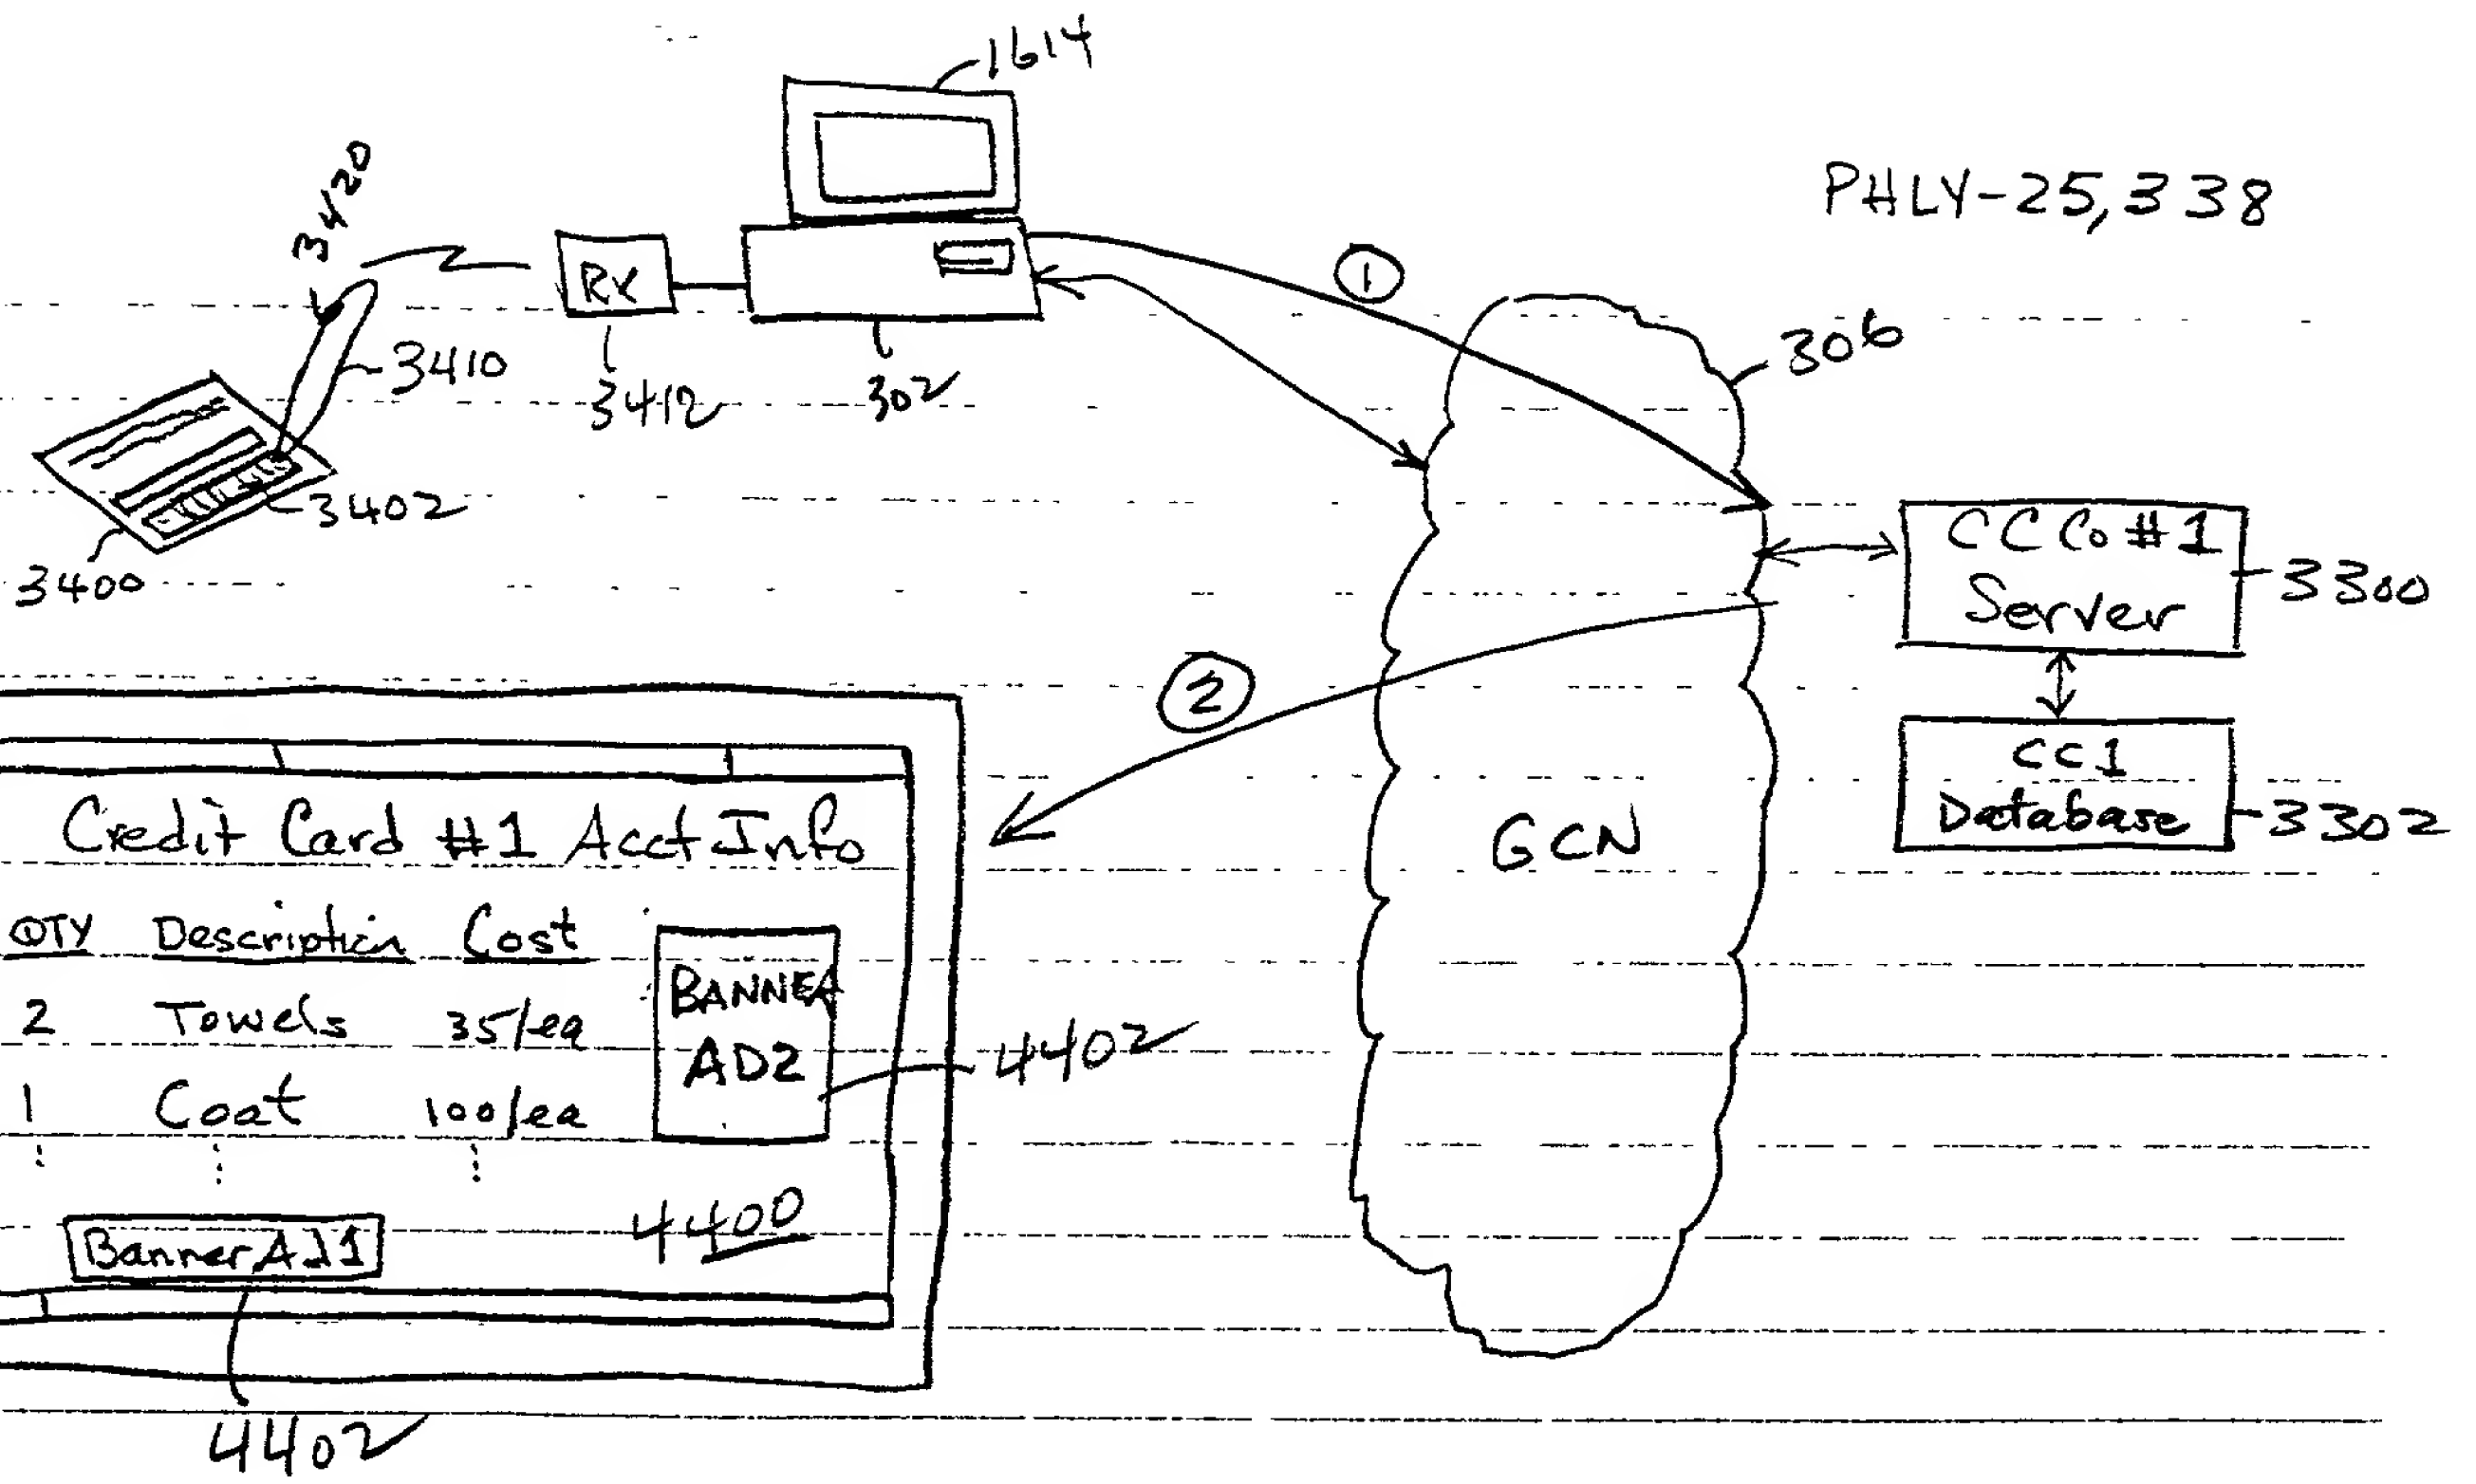 1614
PHLY-25,338
3420
RX
1
306
3410
3412
302
3402
3400
CC Co #1
Server
3300
2
CC1
Database
3302
Credit Card #1 Acct Info
GCN
QTY Description Cost
2 Towels 35/ea
BANNER
AD2
4402
1 Coat 100/ea
4400
Banner AD1
4402